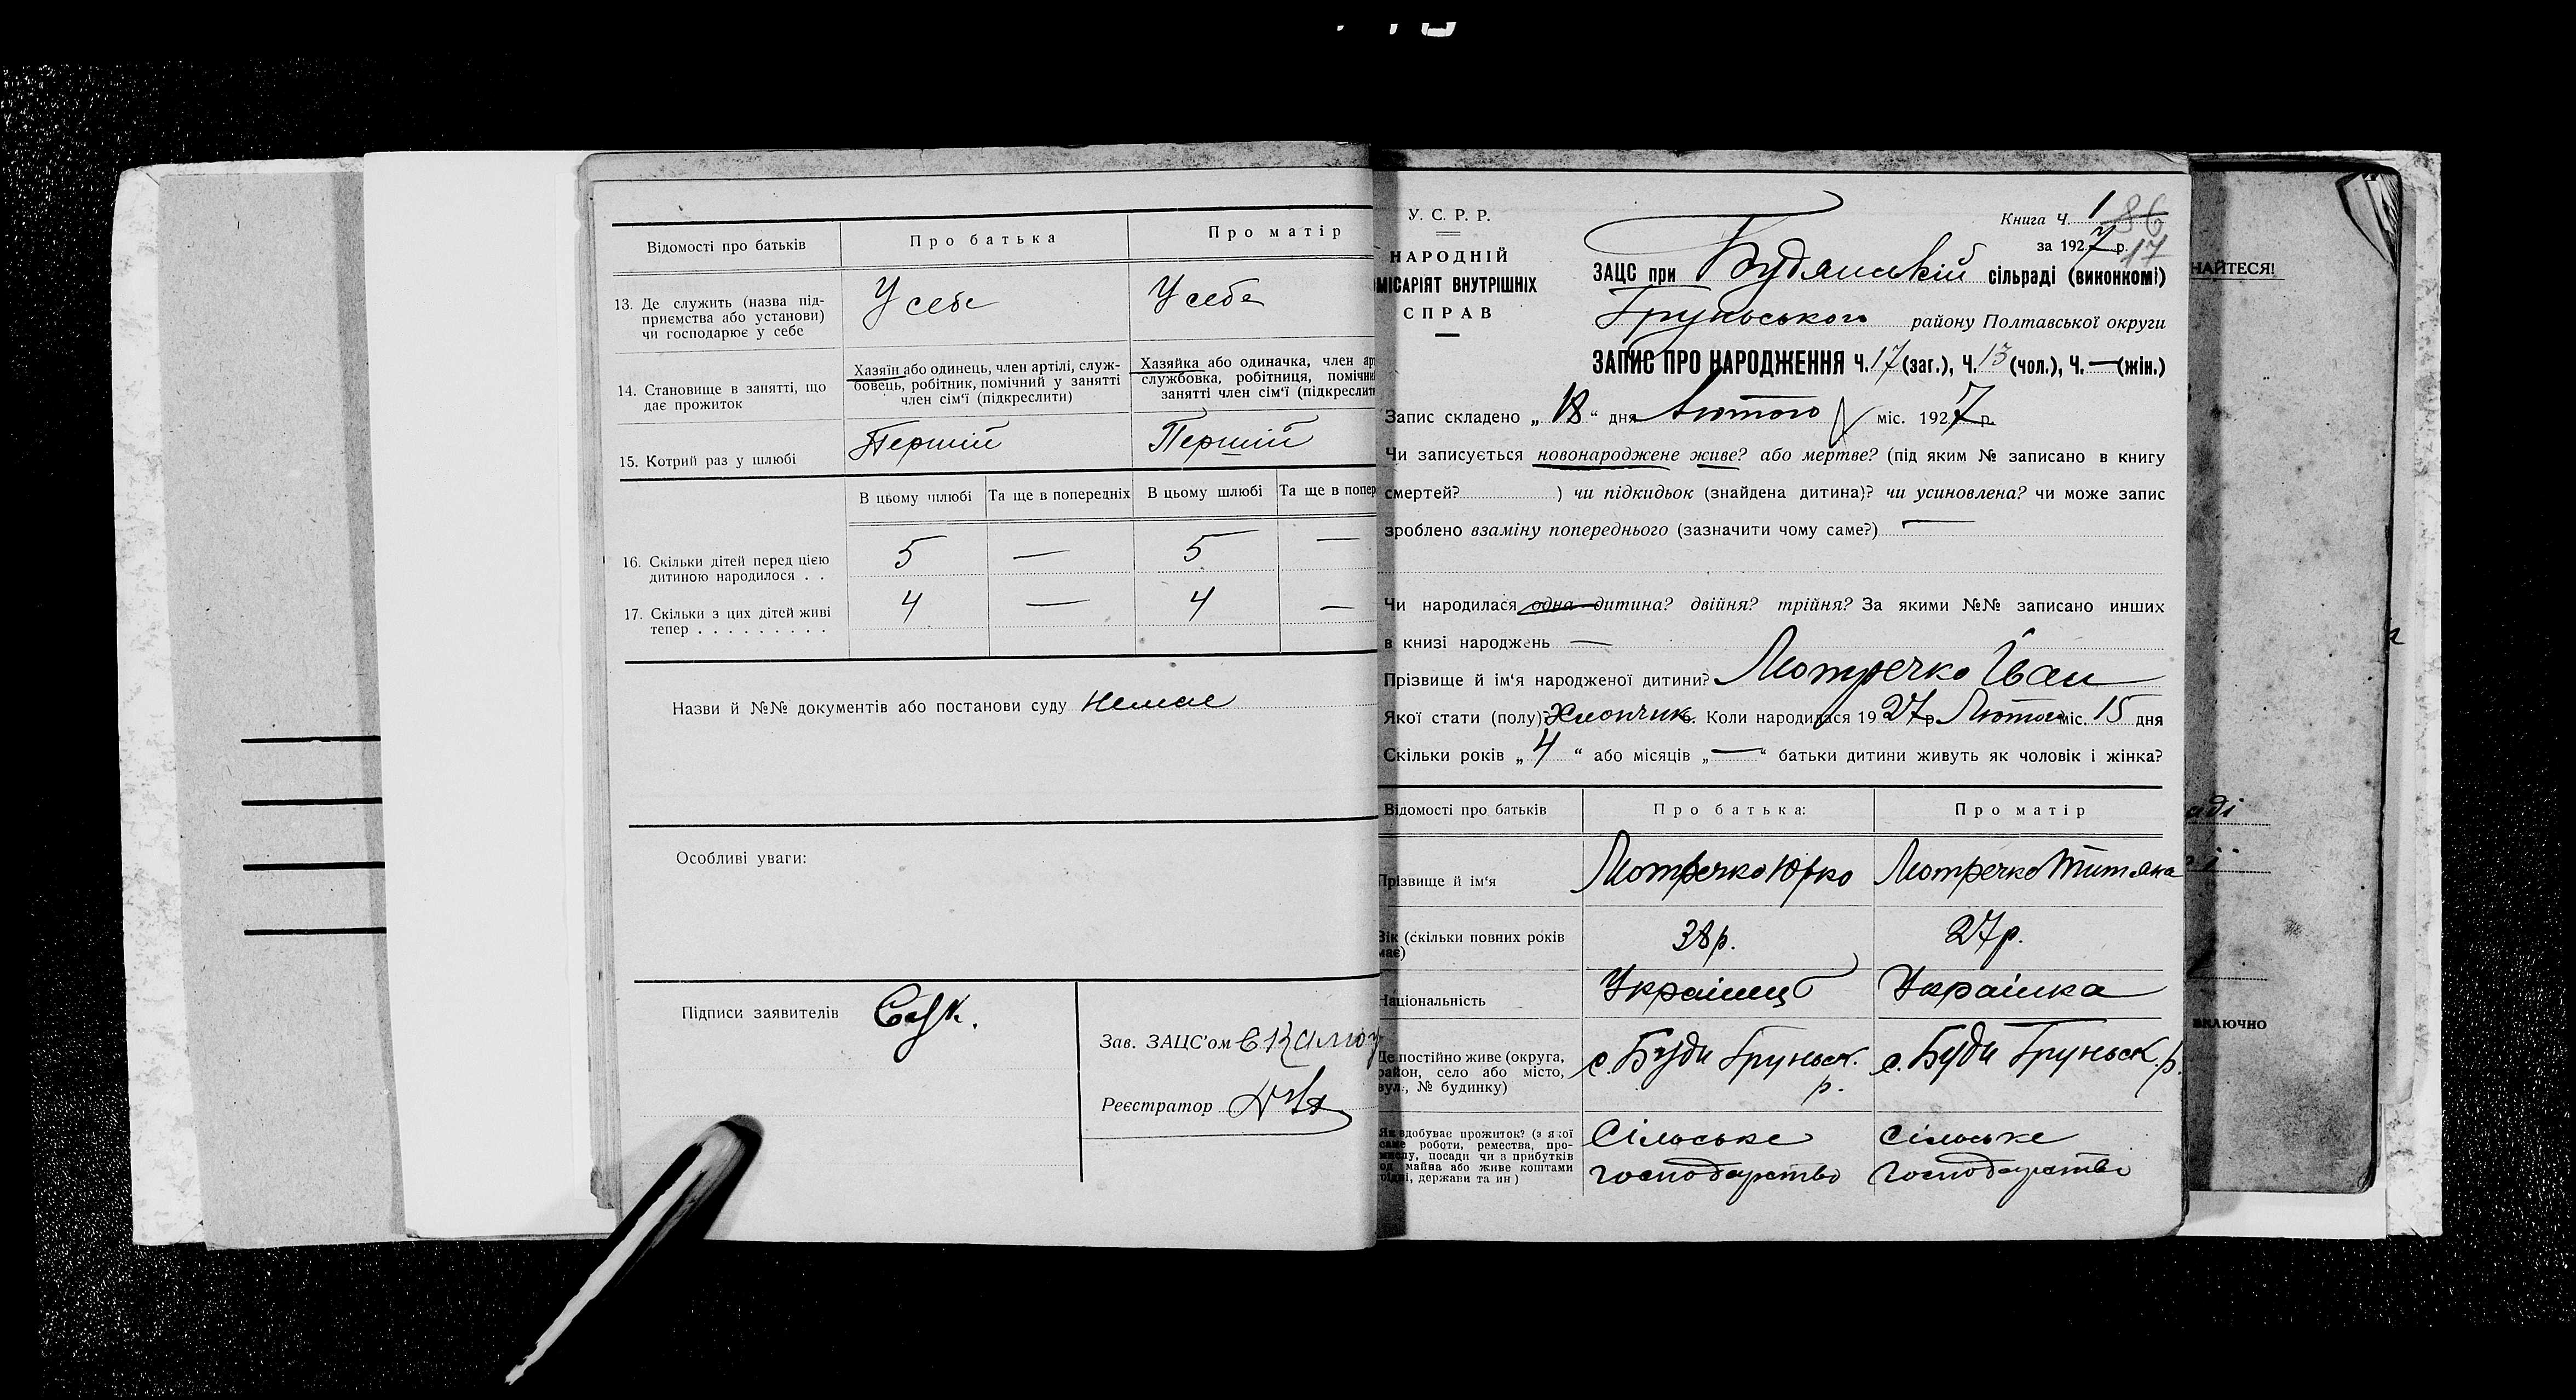 Відомості про батьків
Про батька
Про матір
13. Де служить (назва під-
приємства або установи)
чи господарює у себе
У себе
У себе
14. Становище в занятті, що
дає прожиток
Хазяїн або одинець, член артілі, служ-
бовець, робітник, помічний у занятті
член сім'ї (підкреслити)
Хазяйка або одиначка, член ар
службовка, робітниця, помічни
занятті член сім'ї (підкреслит
15. Котрий раз у шлюбі
Перший
Перший
В цьому шлюбі
Та ще в попередніх
В цьому шлюбі
Та ще в попер
16. Скільки дітей перед цією
дитиною народилося . .
5 — 5 —
17. Скільки з цих дітей живі
тепер . . . . . . . . .
4 — 4 —
Назви й №№ документів або постанови суду немає
Особливі уваги:
Підписи заявителів
Зав. ЗАЦС'ом
Реєстратор
У. С. Р. Р.
НАРОДНІЙ
МІСАРІЯТ ВНУТРІШНІХ
СПРАВ
Книга Ч. 1
86
за 1927 р.
17
ЗАЦС при Будянській сільраді (виконкомі)
Груньського району Полтавської округи
ЗАПИС ПРО НАРОДЖЕННЯ Ч. 17 (заг.), Ч. 13 (чол.), Ч. — (жін.)
Запис складено „ 18 “ дня Лютого міс. 1927 р.
Чи записується новонароджене живе? або мертве? (під яким № записано в книгу
смертей? ) чи підкидьок (знайдена дитина)? чи усиновлена? чи може запис
зроблено взаміну попереднього (зазначити чому саме?) —
Чи народилася одна дитина? двійня? трійня? За якими №№ записано инших
в книзі народжень —
Прізвище й ім'я народженої дитини? Мотречко Іван
Якої стати (полу)? Хлопчик. Коли народилася 1927 р. Лютого міс. 15 дня
Скільки років „ 4 “ або місяців „ — “ батьки дитини живуть як чоловік і жінка?
Відомості про батьків
Про батька:
Про матір
Прізвище й ім'я
Мотречко Юрко
Мотречко Титяна
Вік (скільки повних років
має)
38 р.
27 р.
Національність
Українець
Українка
Де постійно живе (округа,
район, село або місто,
вул., № будинку)
с. Буди Груньск.
р.
с. Буди Груньск. р.
Як здобуває прожиток? (з якої
саме роботи, ремества, про-
мислу, посади чи з прибутків
од майна або живе коштами
рідні, держави та ин)
Сільське
господарство
Сільське
господарство
НАЙТЕСЯ!
аді
ії
включно